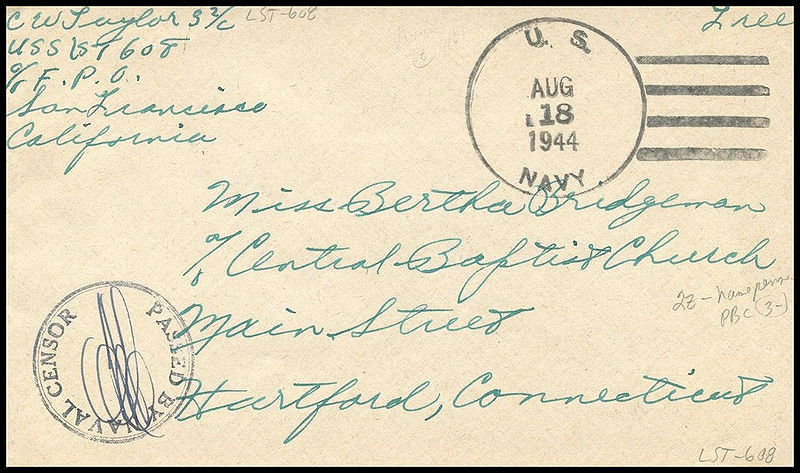 C W Taylor S 2/c LST-608
USS LST 608
c/o F. P. O.
San Francisco
California
Free
U. S.
AUG
18
1944
NAVY
Miss Bertha Bridgeman
c/o Central Baptist Church
Main Street
Hartford, Connecticut
PASSED BY NAVAL CENSOR
2Z -
PBC (3-)
LST-608